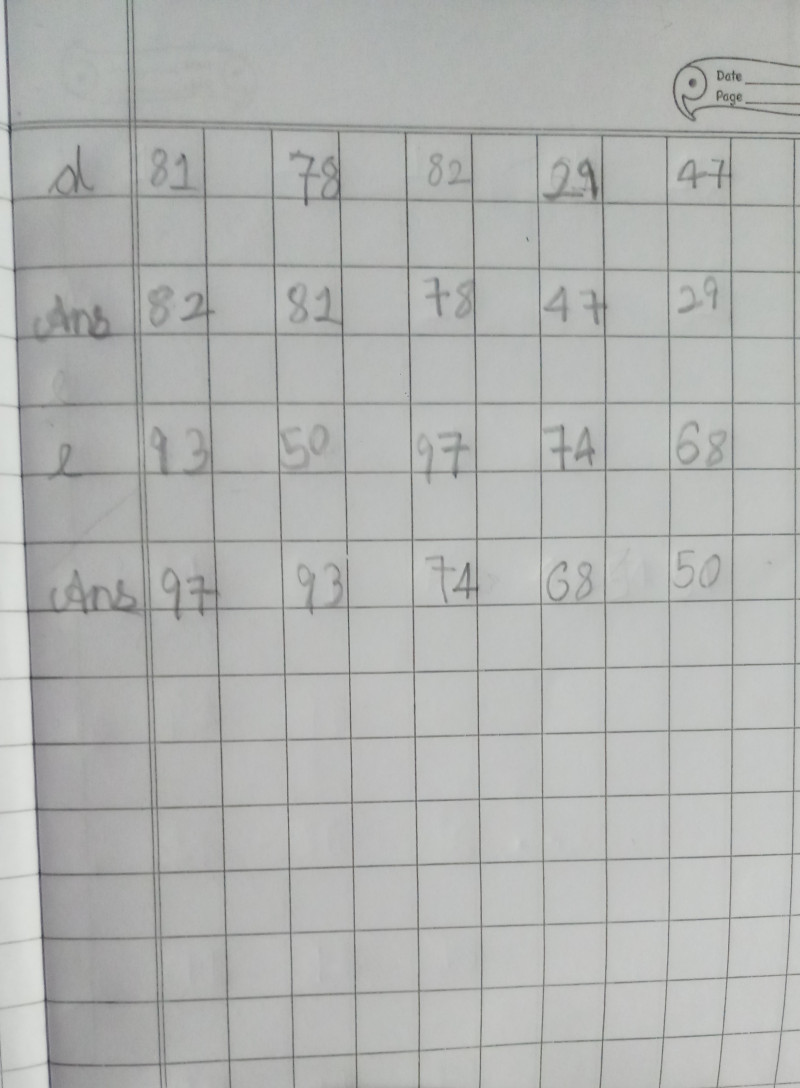 Date
Page
d 81 78 82 29 47
Ans 82 81 78 47 29
e 93 50 97 74 68
Ans 97 93 74 68 50